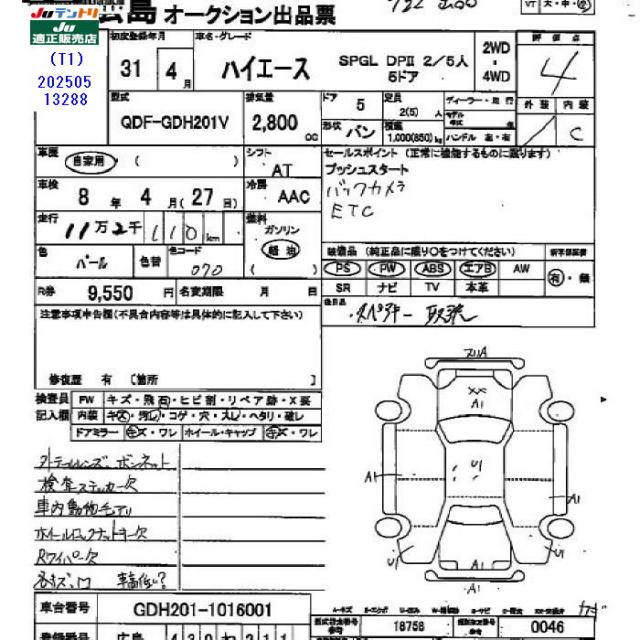 Juテントリ
Ju 適正販売店
広島 オークション出品票
(T1)
202505
13288
VT 大・中・②
初度登録年月
31 4 月
車名・グレード
ハイエース
SPGL DPⅡ 2/5人
5ドア
2WD
4WD
評価点
4
型式
QDF-GDH201V
排気量
2,800 cc
ドア 5
形状 バン
定員 2(5) 人
積載 1,000(850) kg
ディーラー・並行
モデル年式 年
ハンドル 左・右
外装 内装
C
車歴
自家用 ( )
シフト
AT
セールスポイント (正常に機能するものに限ります)
プッシュスタート
バックカメラ
ETC
車検
8 年 4 月 ( 27 日 )
冷房
AAC
走行
11万2千110 km
燃料
ガソリン
軽油
( )
色
パール
色替
色コード
070
装備品 (純正品に限り〇をつけてください)
PS PW ABS エアB AW
SR ナビ TV 本革
新車保証書
有・無
R券 9,550 円
名変期限 月 日
後日品
・スペアキー 取説
注意事項申告欄(不具合内容等は具体的に記入して下さい)
修復歴 有 〔箇所 〕
検査員記入欄
FW キズ・飛石・ヒビ割・リペア跡・X要
内装 キズ・汚レ・コゲ・穴・スレ・ヘタリ・破レ
ドアミラー キズ・ワレ ホイール・キャップ キズ・ワレ
検査ステッカー欠
車内動物毛アリ
ホイールロックナットキー欠
Rワイパー欠
XX
A1
U1
A1
A1
U1
U1
A1
A1
車台番号 GDH201-1016001
登録番号 広島
型式指定番号 18758
類別区分番号 0046